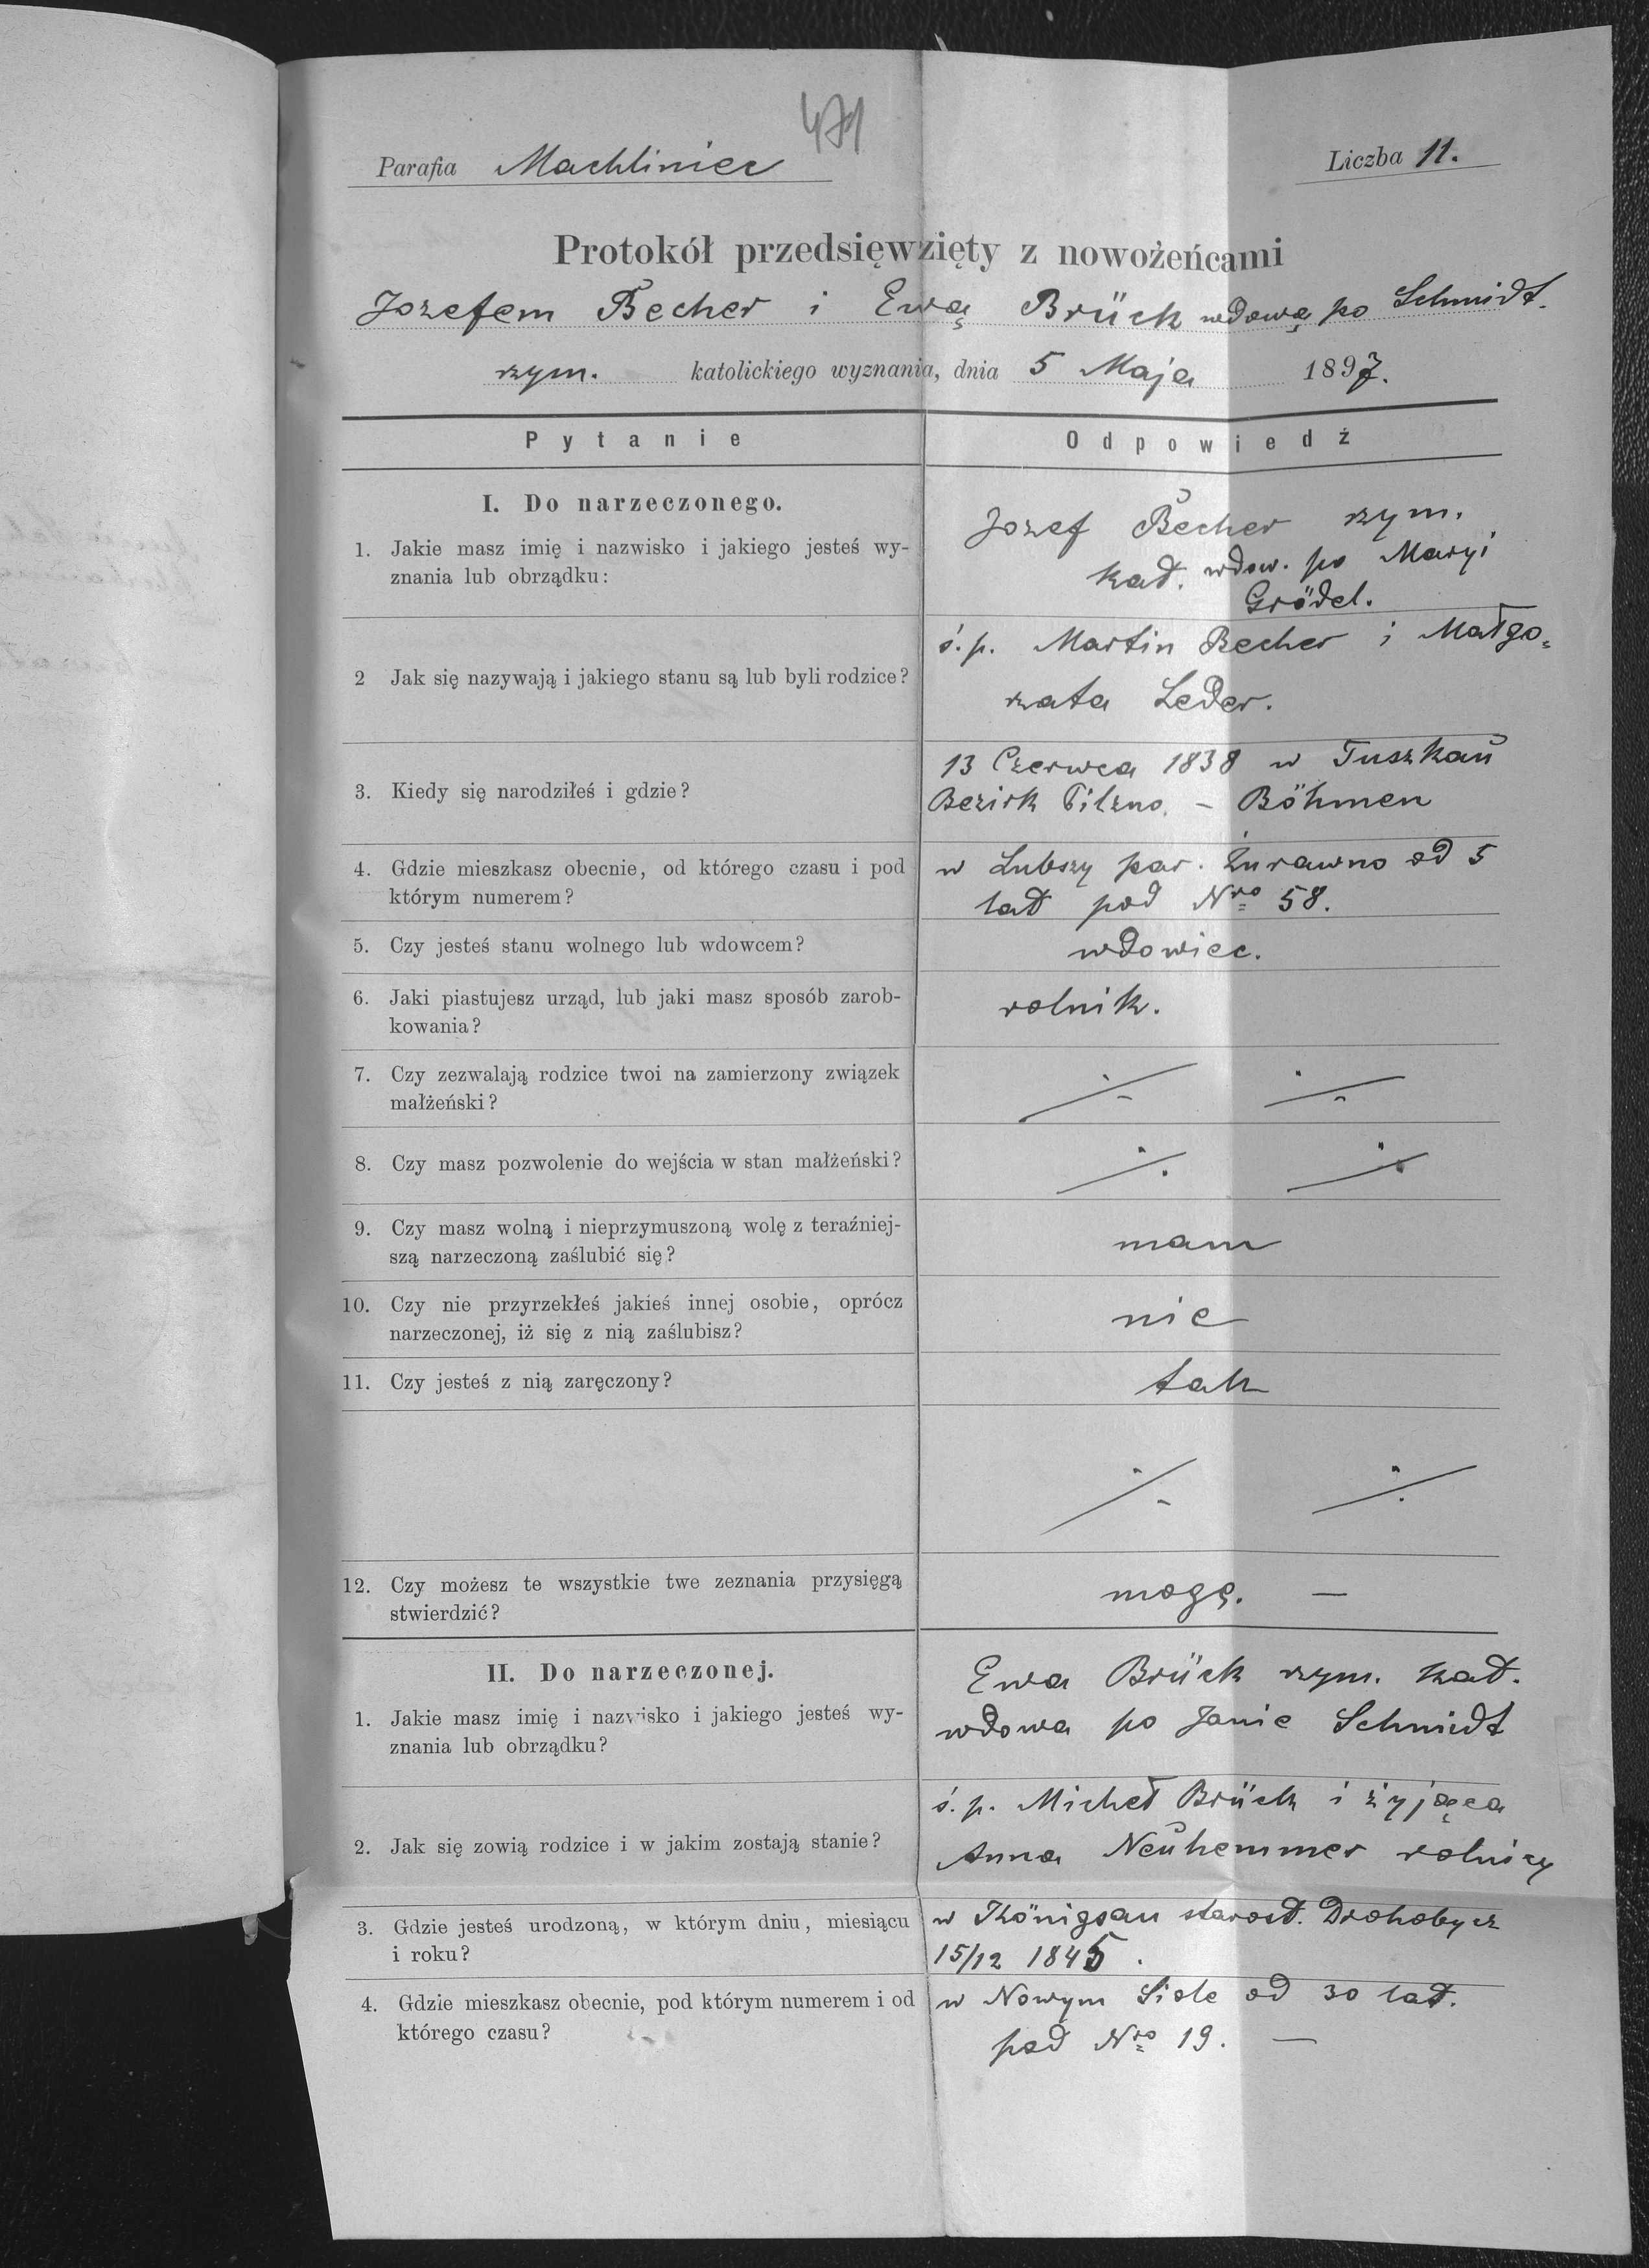 471
Parafia Machliniec
Liczba 11.
Protokół przedsięwzięty z nowożeńcami
Jozefem Becher i Ewą Brück wdową po Schmidt.
rzym. katolickiego wyznania, dnia 5 Maja 1897.
Pytanie
Odpowiedź
I. Do narzeczonego.
1. Jakie masz imię i nazwisko i jakiego jesteś wy-
znania lub obrządku:
Jozef Becher rzym.
kat. wdow. po Maryi
Grödel.
2 Jak się nazywają i jakiego stanu są lub byli rodzice?
ś. p. Martin Becher i Małgo-
rzata Leder.
3. Kiedy się narodziłeś i gdzie?
13 Czerwca 1838 w Tuszkaŭ
Bezirk Pilzno. – Böhmen
4. Gdzie mieszkasz obecnie, od którego czasu i pod
którym numerem?
w Lubszy par. Żurawno od 5
lat pod Nro 58.
5. Czy jesteś stanu wolnego lub wdowcem?
wdowiec.
6. Jaki piastujesz urząd, lub jaki masz sposób zarob-
kowania?
rolnik.
7. Czy zezwalają rodzice twoi na zamierzony związek
małżeński?
8. Czy masz pozwolenie do wejścia w stan małżeński?
9. Czy masz wolną i nieprzymuszoną wolę z teraźniej-
szą narzeczoną zaślubić się?
mam
10. Czy nie przyrzekłeś jakieś innej osobie, oprócz
narzeczonej, iż się z nią zaślubisz?
nie
11. Czy jesteś z nią zaręczony?
tak
12. Czy możesz te wszystkie twe zeznania przysięgą
stwierdzić?
mogę. –
II. Do narzeczonej.
1. Jakie masz imię i nazwisko i jakiego jesteś wy-
znania lub obrządku?
Ewa Brück rzym. kat.
wdowa po Janie Schmidt
2. Jak się zowią rodzice i w jakim zostają stanie?
ś. p. Micheł Brück i żyjąca
Anna Neŭhemmer rolnicy
3. Gdzie jesteś urodzoną, w którym dniu, miesiącu
i roku?
w Königsau starost. Drohobycz
15/12 1845.
4. Gdzie mieszkasz obecnie, pod którym numerem i od
którego czasu?
w Nowym Siole od 30 lat.
pod Nro 19. –